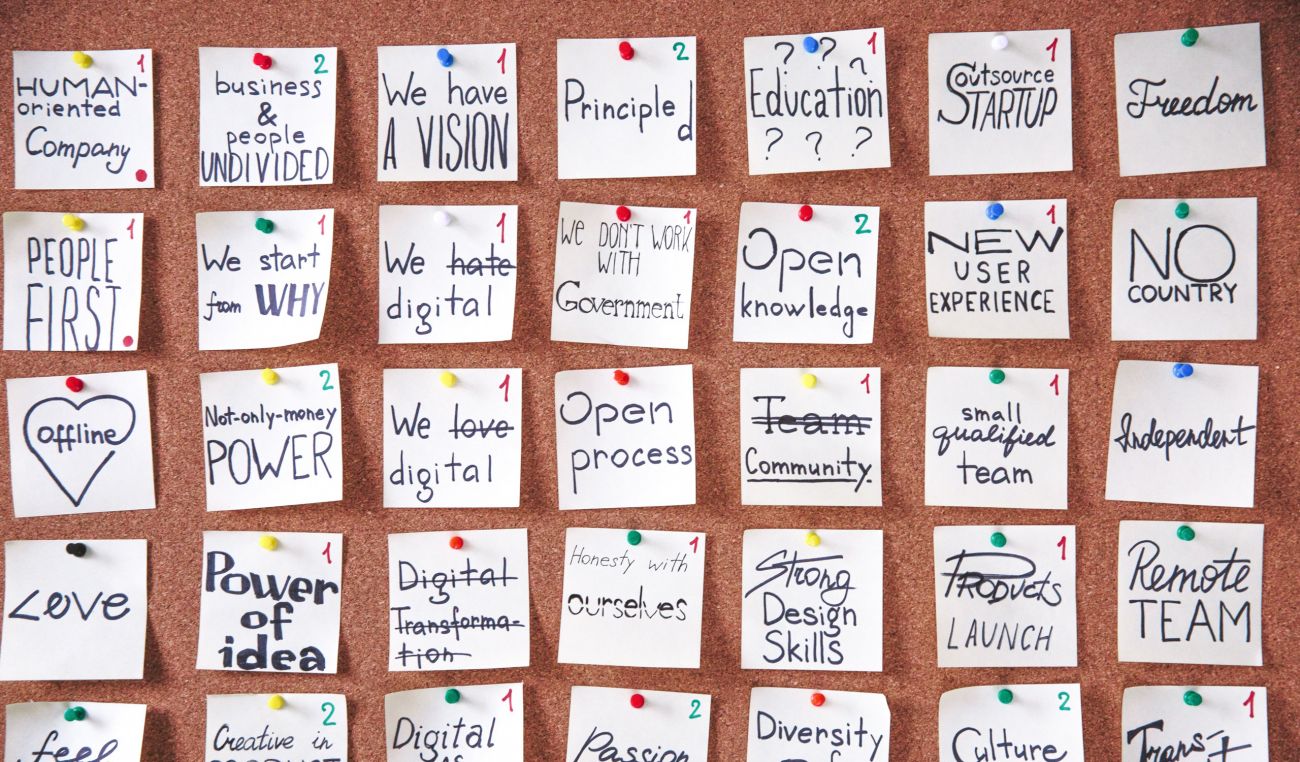 HUMAN-
oriented
Company
1
business
&
people
UNDIVIDED
2
We have
A VISION
1
Principled
2
? ? ?
Education
? ? ?
1
Outsource
STARTUP
1
Freedom
PEOPLE
FIRST
1
We start
from WHY
1
We hate
digital
1
We DON'T WORK
WITH
Government
1
Open
knowledge
2
NEW
USER
EXPERIENCE
1
NO
COUNTRY
offline
Not-only-money
POWER
2
We love
digital
1
Open
process
Team
Community.
1
small
qualified
team
1
Independent
Love
Power
of
idea
1
Digital
Transforma-
tion
Honesty with
ourselves
1
Strong
Design
Skills
PRODUCTS
LAUNCH
1
Remote
TEAM
feel
Creative in
2
Digital
1
Passion
2
Diversity
Culture
2
1